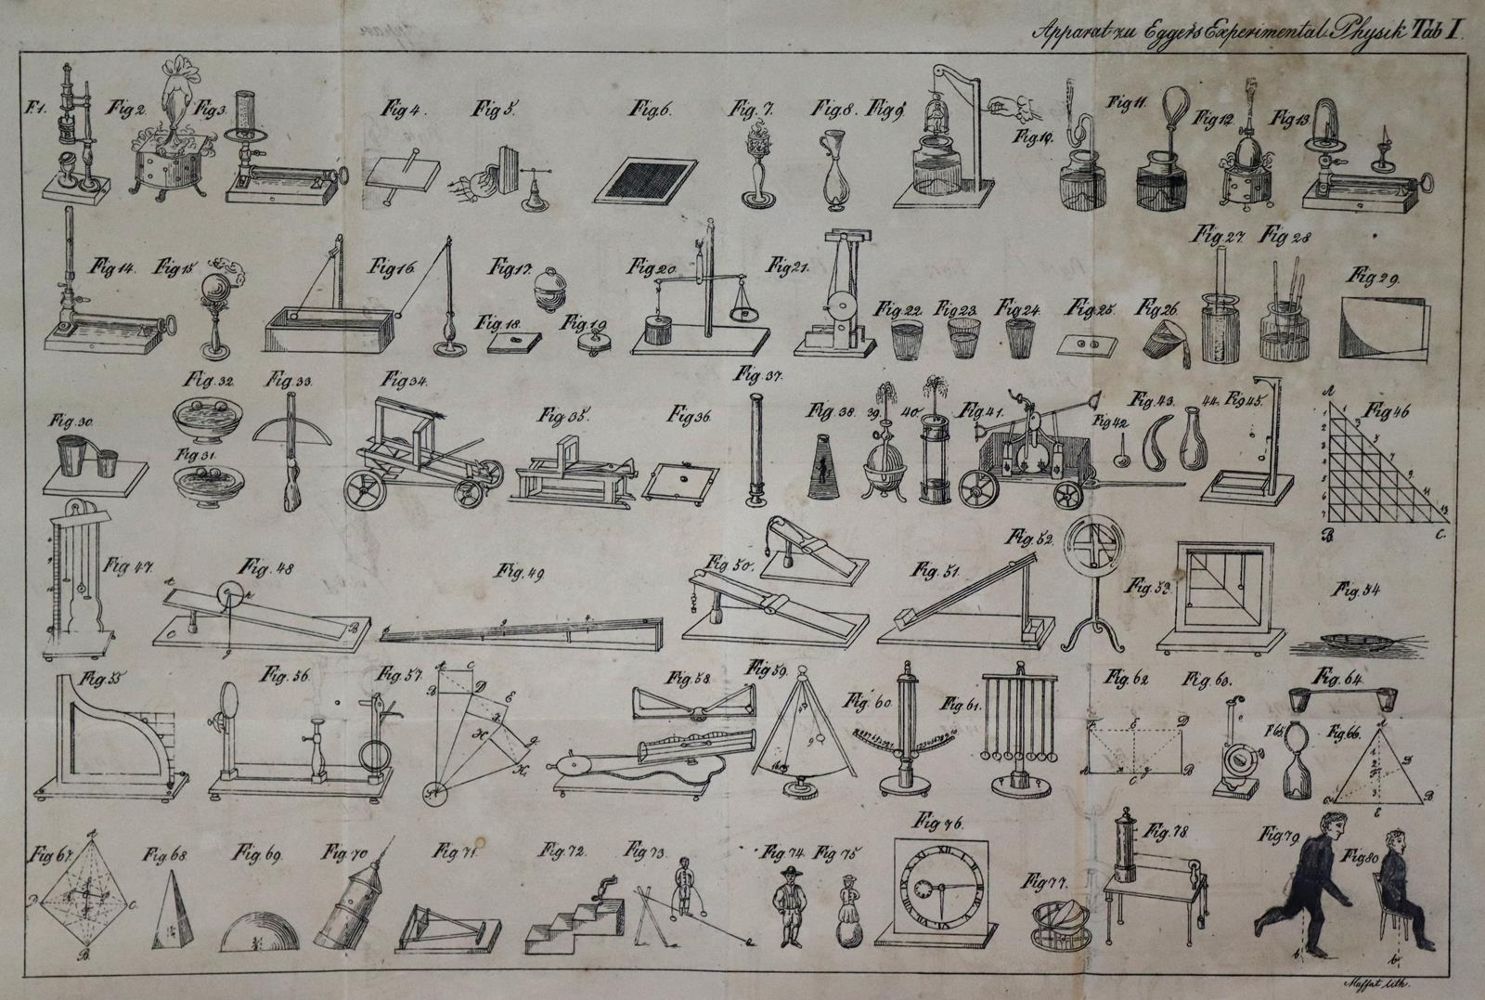 Apparat zu Egger's Experimental-Physik Tab I.
F.1. Fig 2. Fig 3. Fig 4. Fig 5. Fig. 6. Fig. 7. Fig. 8. Fig 9. Fig. 10. Fig 11. Fig 12. Fig 13.
Fig 14. Fig 15. Fig 16. Fig 17. Fig 18. Fig 19. Fig 20. Fig 21. Fig 22. Fig 23. Fig 24. Fig 25. Fig 26. Fig 27. Fig 28. Fig 29.
Fig 30. Fig. 31. Fig. 32. Fig. 33. Fig 34. Fig 35. Fig 36. Fig. 37. Fig. 38. 39. 40. Fig 41. Fig 42. Fig. 43. 44. Fig 45. Fig 46
A 1 2 3 4 5 6 7 1 3 5 7 9 11 13 B C.
Fig 47. Fig. 48 Fig. 49 Fig. 50. Fig. 51. Fig. 52. Fig. 53. Fig. 54
Fig. 55 Fig. 56. Fig. 57. Fig. 58. Fig. 59. Fig 60. Fig 61. Fig 62 Fig 63. Fig. 64. F 65. Fig 66.
Fig 67. Fig 68. Fig 69. Fig 70. Fig 71. Fig 72. Fig 73. Fig 74. Fig 75 Fig 76. Fig 77. Fig 78. Fig 79 Fig 80
Moffat lith.